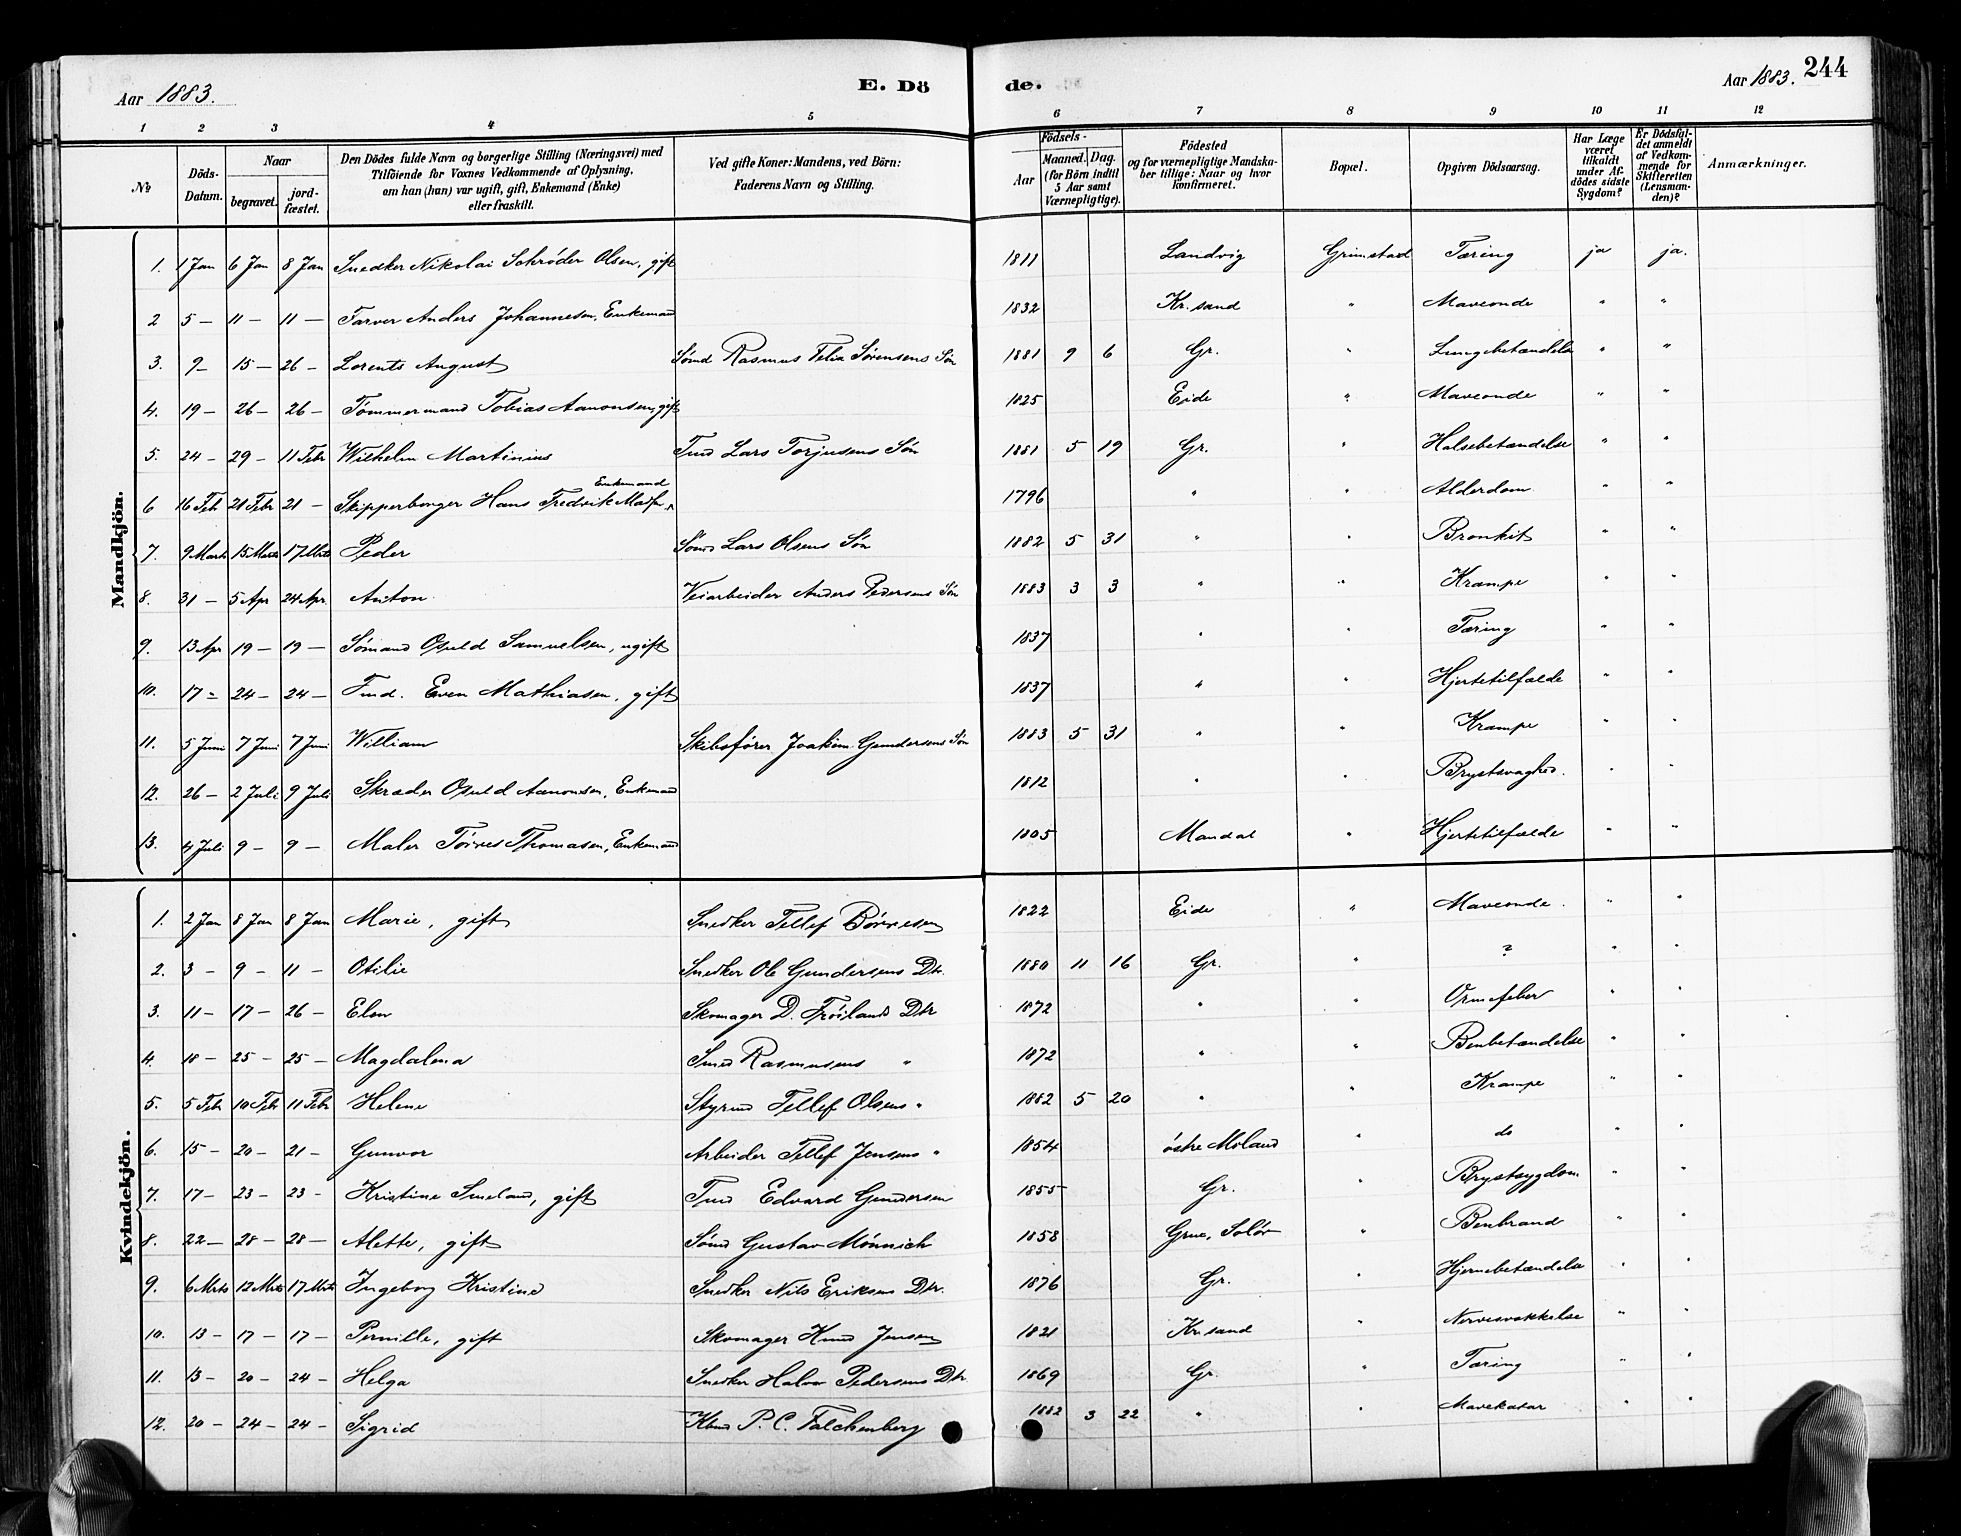 Aar 1883. E. Dö de. Aar 1883. 244
1 2 3 4 5 6 7 8 9 10 11 12
№ Döds-Datum. Naar begravet. jordfæstet. Den Dödes fulde Navn og borgerlige Stilling (Næringsvei) med Tilföiende for Voxnes Vedkommende af Oplysning, om han (hun) var ugift, gift, Enkemand (Enke) eller fraskilt. Ved gifte Koner: Mandens, ved Börn: Faderens Navn og Stilling. Födsels- Aar Maaned. Dag. (for Börn indtil 5 Aar samt Værnepligtige). Födested og for værnepligtige Mandskaber tillige: Naar og hvor konfirmeret. Bopæl. Opgiven Dödsaarsag. Har Læge været tilkaldt under Afdödes sidste Sygdom? Er Dödsfaldet anmeldt af Vedkommende for Skifteretten (Lensmanden)? Anmærkninger.
Mandkjön.
1. 1 Jan 6 Jan 8 Jan Snedker Nikolai Schrøder Olsen, gift 1811 Landvig Grimstad Tæring ja ja.
2 5 — 11 — 11 — Farver Anders Johannesen, Enkemand 1832 Kr.sand " Maveonde " "
3. 9 — 15 — 26 — Lorents August Sømd Rasmus Felix Sørensens Søn 1881 9 6 Gr. " Lungebetændelse " "
4. 19 — 26 — 26 — Tømmermand Tobias Aanonsen, gift 1825 Eide " Maveonde " "
5. 24 — 29 — 11 Febr Wilhelm Martinius Tmd Lars Torjusens Søn 1881 5 19 Gr. " Halsebetændelse " "
6 16 Feb 21 Febr 21 — Skipperborger Hans Fredrik Enkemand 1796 " " Alderdom " "
7. 9 Marts 15 Marts 17 Mrts Peder Sømd Lars Olsens Søn 1882 5 31 " " Bronkit " "
8. 31 — 5 Apr 24 Apr. Anton Veiarbeider Anders Pedersens Søn 1883 3 3 " " Krampe " "
9. 13 Apr 19 — 19 — Sømand Osuld Samuelsen, ugift 1837 " " Tæring " "
10. 17 - 24 — 24 — Tmd. Even Mathiasen, gift 1837 " " Hjertetilfælde " "
11. 5 Juni 7 Juni 7 Juni William Skibsfører Joakim Gundersens Søn 1883 5 31 " " Krampe " "
12. 26 — 2 Juli 9 Juli Skræder Osuld Aanonsen, Enkemand 1812 " " Brystsvaghed. " "
13. 4 Juli 9 — 9 — Maler Tørres Thomasen, Enkemand 1805 Mandal " Hjertetilfælde " "
Kvindekjön.
1. 2 Jan 8 Jan 8 Jan Marie, gift Snedker Tellef Børresen 1822 Eide " Maveonde. " "
2. 3 — 9 — 11 — Otilie Snedker Ole Gundersens Dtr. 1880 11 16 Gr. " ? " "
3. 11 — 17 — 26 — Elen Skomager D. Frøilands Dtr 1872 " " Ormefeber " "
4. 18 — 25 — 25 — Magdalena Smed Rasmusens " 1872 " " Benbetændelse " "
5. 5 Febr 10 Febr 11 Febr Helene Styrmd Tellef Olsens " 1882 5 20 " " Krampe " "
6. 15 — 20 — 21 — Gunvor Arbeider Tellef Jensens " 1854 østre Moland " do " "
7. 17 — 23 — 23 - Kristine Smeland, gift Tmd Edvard Gundersen 1855 Gr. " Brystsygdom " "
8. 22 — 28 — 28 — Alette, gift Sømd Gustav Mönnich 1858 Grue, Solør " Benbrand " "
9. 6 Mrts 12 Mrts 17 Mrts Ingeborg Kristine Snedker Nils Eriksens Dtr. 1876 Gr. " Hjernebetændelse " "
10. 13 — 17 — 17 — Pernille, gift Skomager Knud Jensen 1821 Kr.sand " Nervesvækkelse " "
11. 13 — 20 — 24 — Helga Snedker Halvor Pedersens Dtr 1869 Gr. " Tæring " "
12. 20 — 24 — 24 — Sigrid P. C. Falckenberg 1882 3 22 " " Mavekatar " "